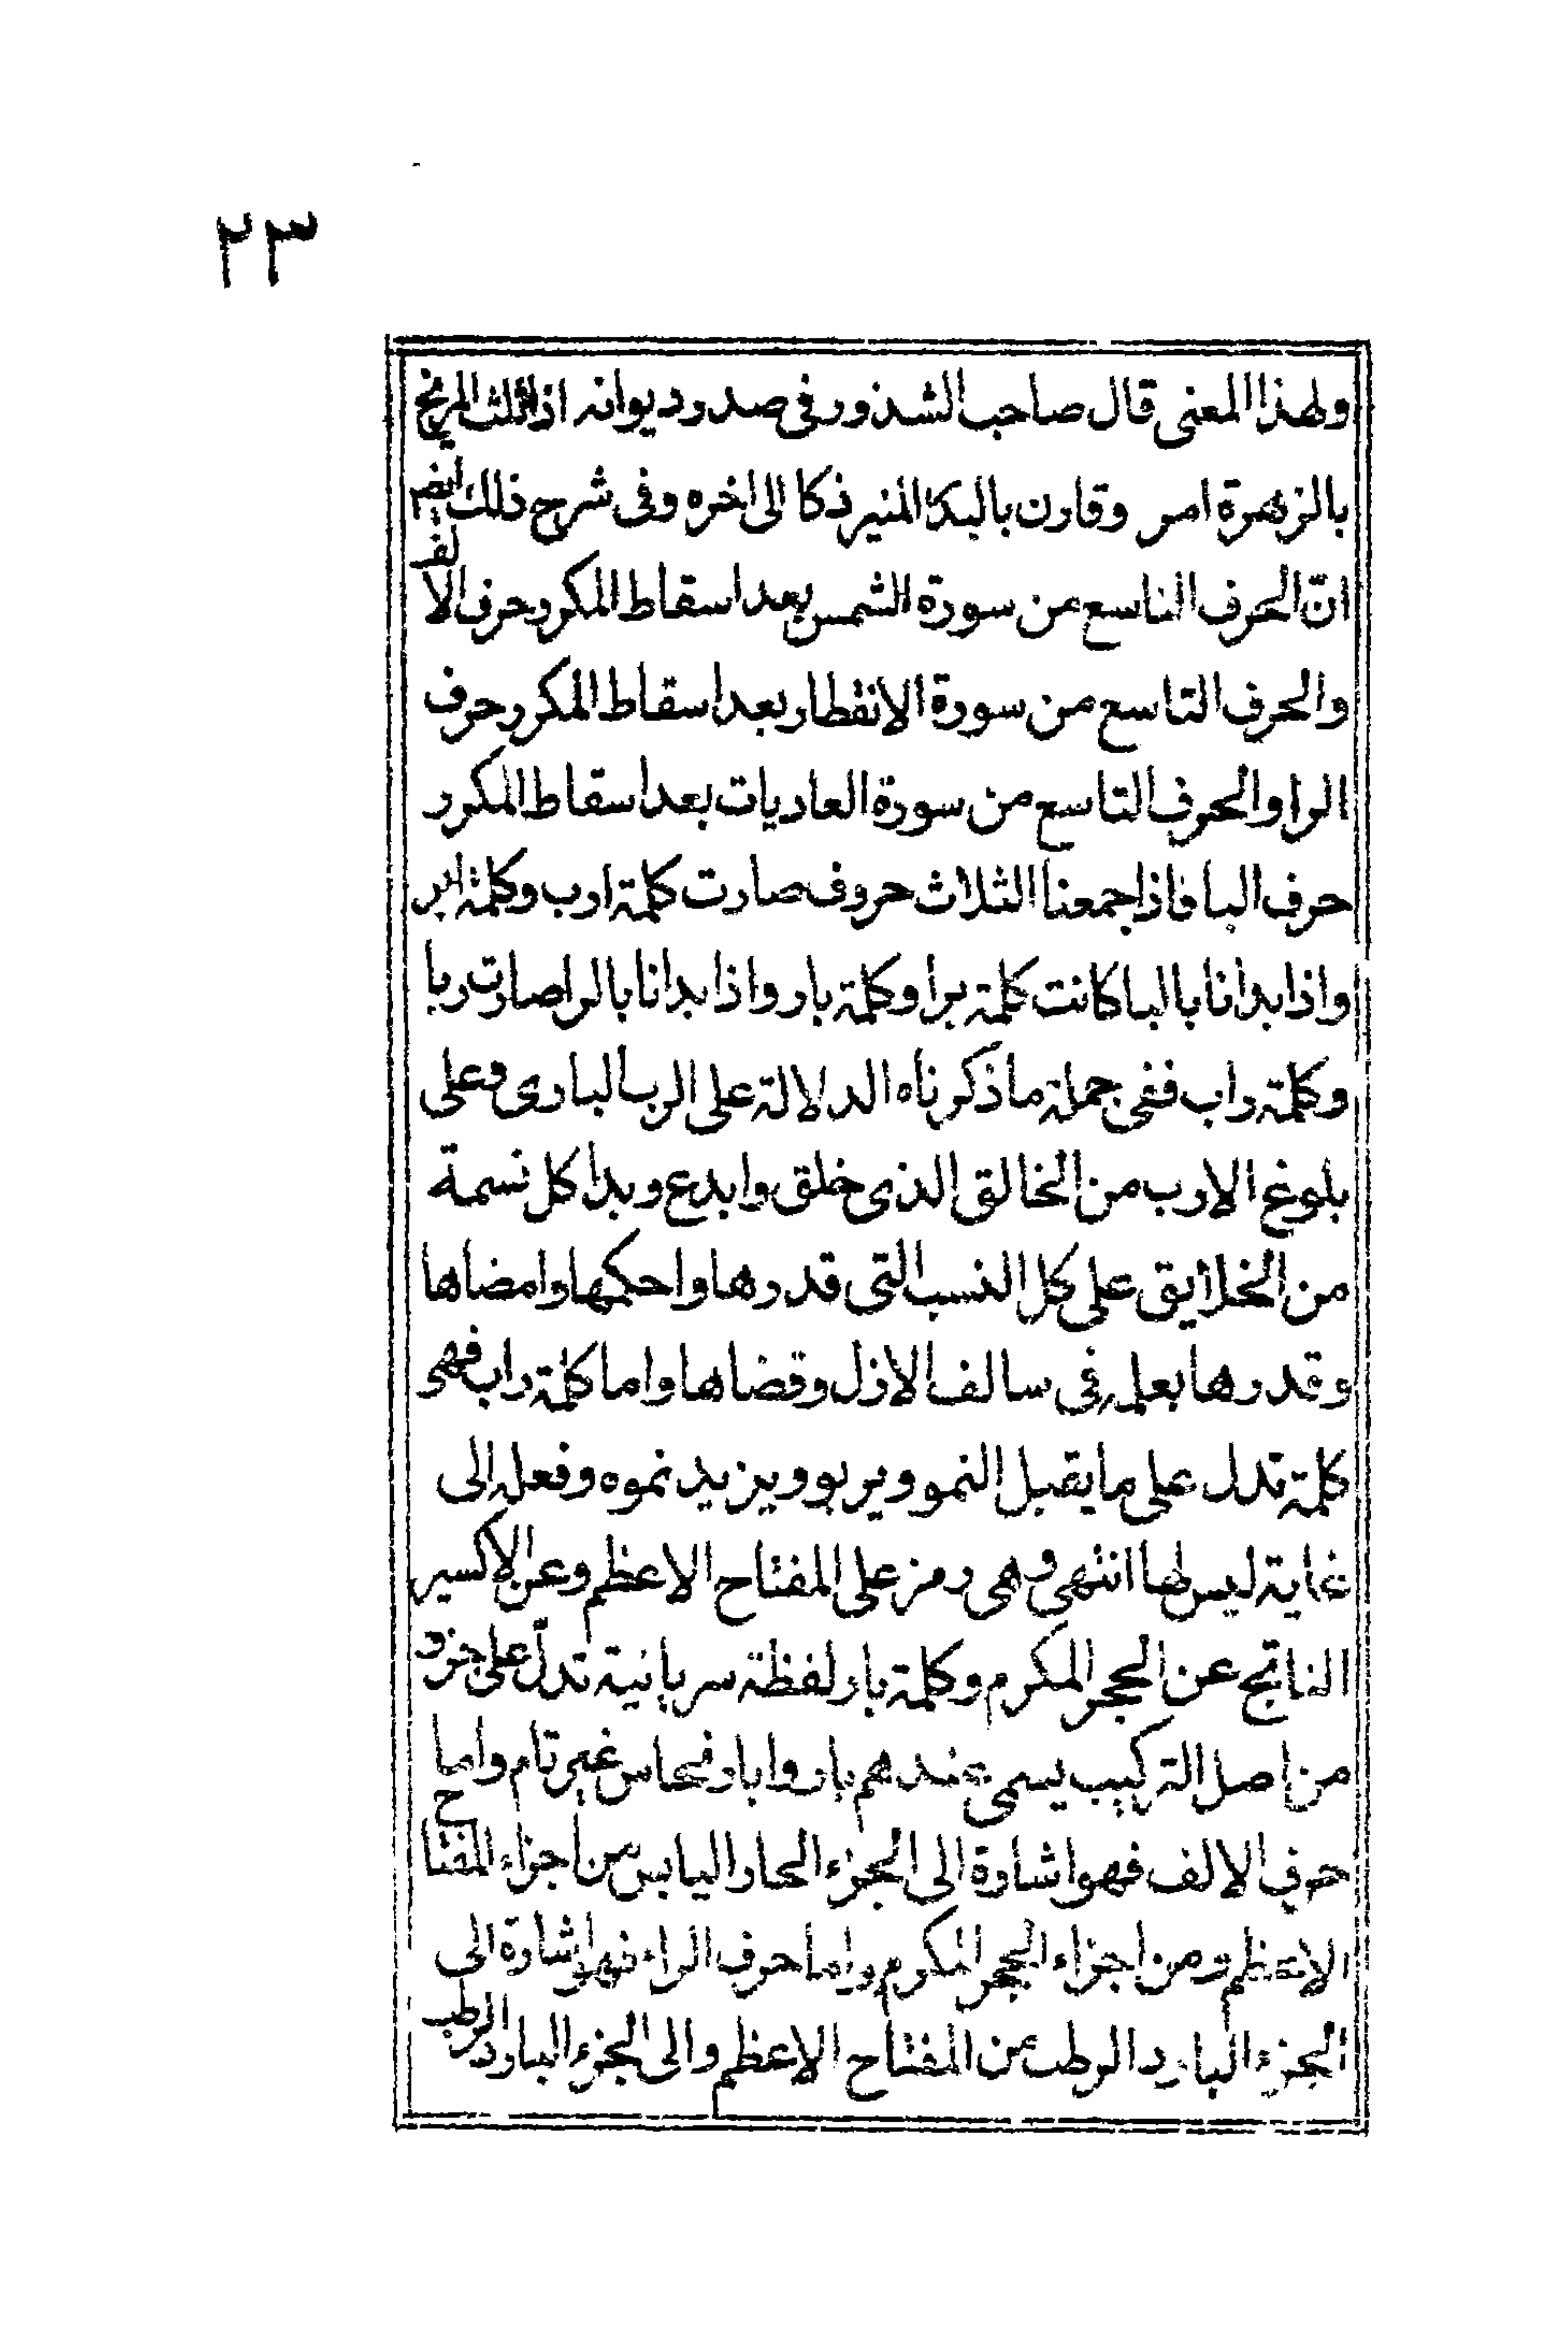 ٢٣
ولهذا المعنى قال صاحب الشذور فى صدور ديوانه اذا ثلث المريخ
بالزهرة امر وقارن بالبدر المنير ذكا الى اخره وفى شرح ذلك ايضا
انّ الحرف التاسع من سورة الشمس بعد اسقاط المكرر حرف الالف
والحرف التاسع من سورة الانفطار بعد اسقاط المكرر حرف
الرا والحرف التاسع من سورة العاديات بعد اسقاط المكرر
حرف البا فاذا جمعنا الثلاث حروف صارت كلمة ارب وكلمة ابر
واذا بدانا بالبا كانت كلمة برا وكلمة بار واذا بدانا بالرا صارت ربا
وكلمة راب ففى جملة ما ذكرناه الدلالة على الرب البارى وعلى
بلوغ الارب من الخالق الذى خلق وابدع وبدا كل نسمة
من الخلايق على كل النسب التى قدرها واحكمها وامضاها
وقدرها بعلمه فى سالف الازل وقضاها واما كلمة راب فهى
كلمة تدل على ما يقبل النمو ويربو ويزيد نموه وفعله الى
غاية ليس لها انتهى وهى رمز على المفتاح الاعظم وعن الاكسير
الناتج عن الحجر المكرم وكلمة بار لفظة سريانية تدلّ على جزو
من اصل التركيب يسمى عندهم بار وابار نحاس غير تام واما
حرف الالف فهو اشارة الى الجزء الحار اليابس من اجزاء المفتاح
الاعظم ومن اجزاء الحجر المكرم واما حرف الراء فهو اشارة الى
الجزء البارد الرطب من المفتاح الاعظم والى الجزء البارد الرطب